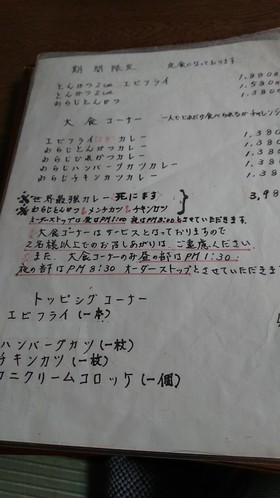 期間限定 定食になっております
とんかつ2cm エビフライ 1,980
とんかつ2cm 1,580
おらじとんかつ 1,380
大食コーナー 一人でどれだけ食べられるかチャレンジ
エビフライ カレー 1,380
おらじとんかつカレー 1,380
おらじひれかつカレー 1,380
おらじハンバーグカツカレー 1,380
おらじチキンカツカレー 1,380
※世界最強カレー 死にます
※おらじとんかつ&メンチカツ&チキンカツ 3,98
オーダーストップは昼はPM1:00 夜はPM8:00とさせていただきます。
※大食コーナーはサービスとなっておりますので
2名様以上でのお召しあがりは ご遠慮ください
※また、大食コーナーのみ昼の部はPM1:30
夜の部はPM8:30 オーダーストップとさせていただきます
トッピングコーナー
エビフライ (一本)
ハンバーグカツ (一枚)
チキンカツ (一枚)
カニクリームコロッケ (一個)